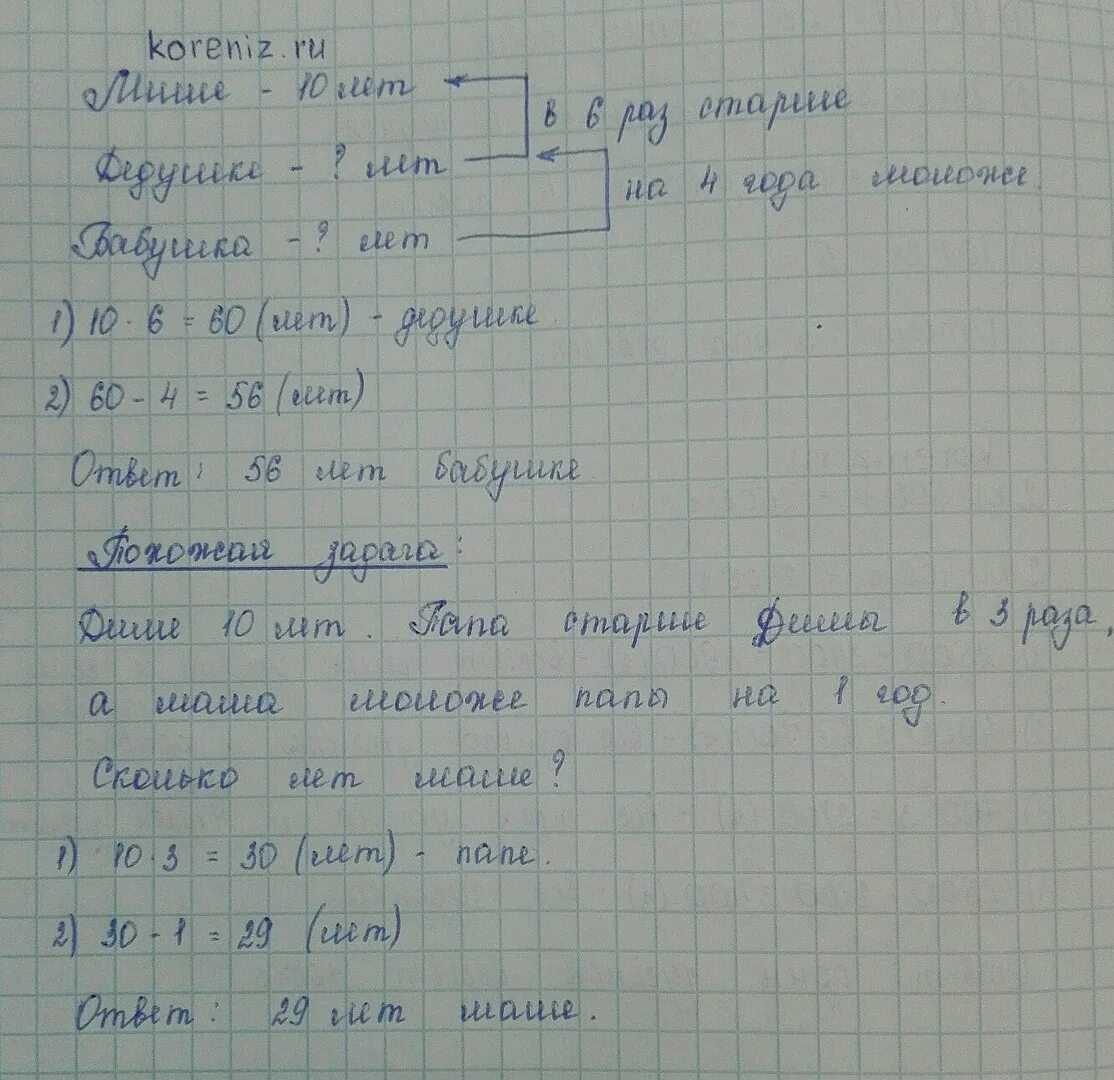 koreniz.ru
Мише - 10 лет
в 6 раз старше
Дедушке - ? лет
на 4 года моложе.
Бабушка - ? лет
1) 10 · 6 = 60 (лет) - дедушке
2) 60 - 4 = 56 (лет)
Ответ: 56 лет бабушке
Похожая задача:
Диме 10 лет. Папа старше Димы в 3 раза,
а мама моложе папы на 1 год.
Сколько лет маме?
1) 10 · 3 = 30 (лет) - папе.
2) 30 - 1 = 29 (лет)
Ответ: 29 лет маме.